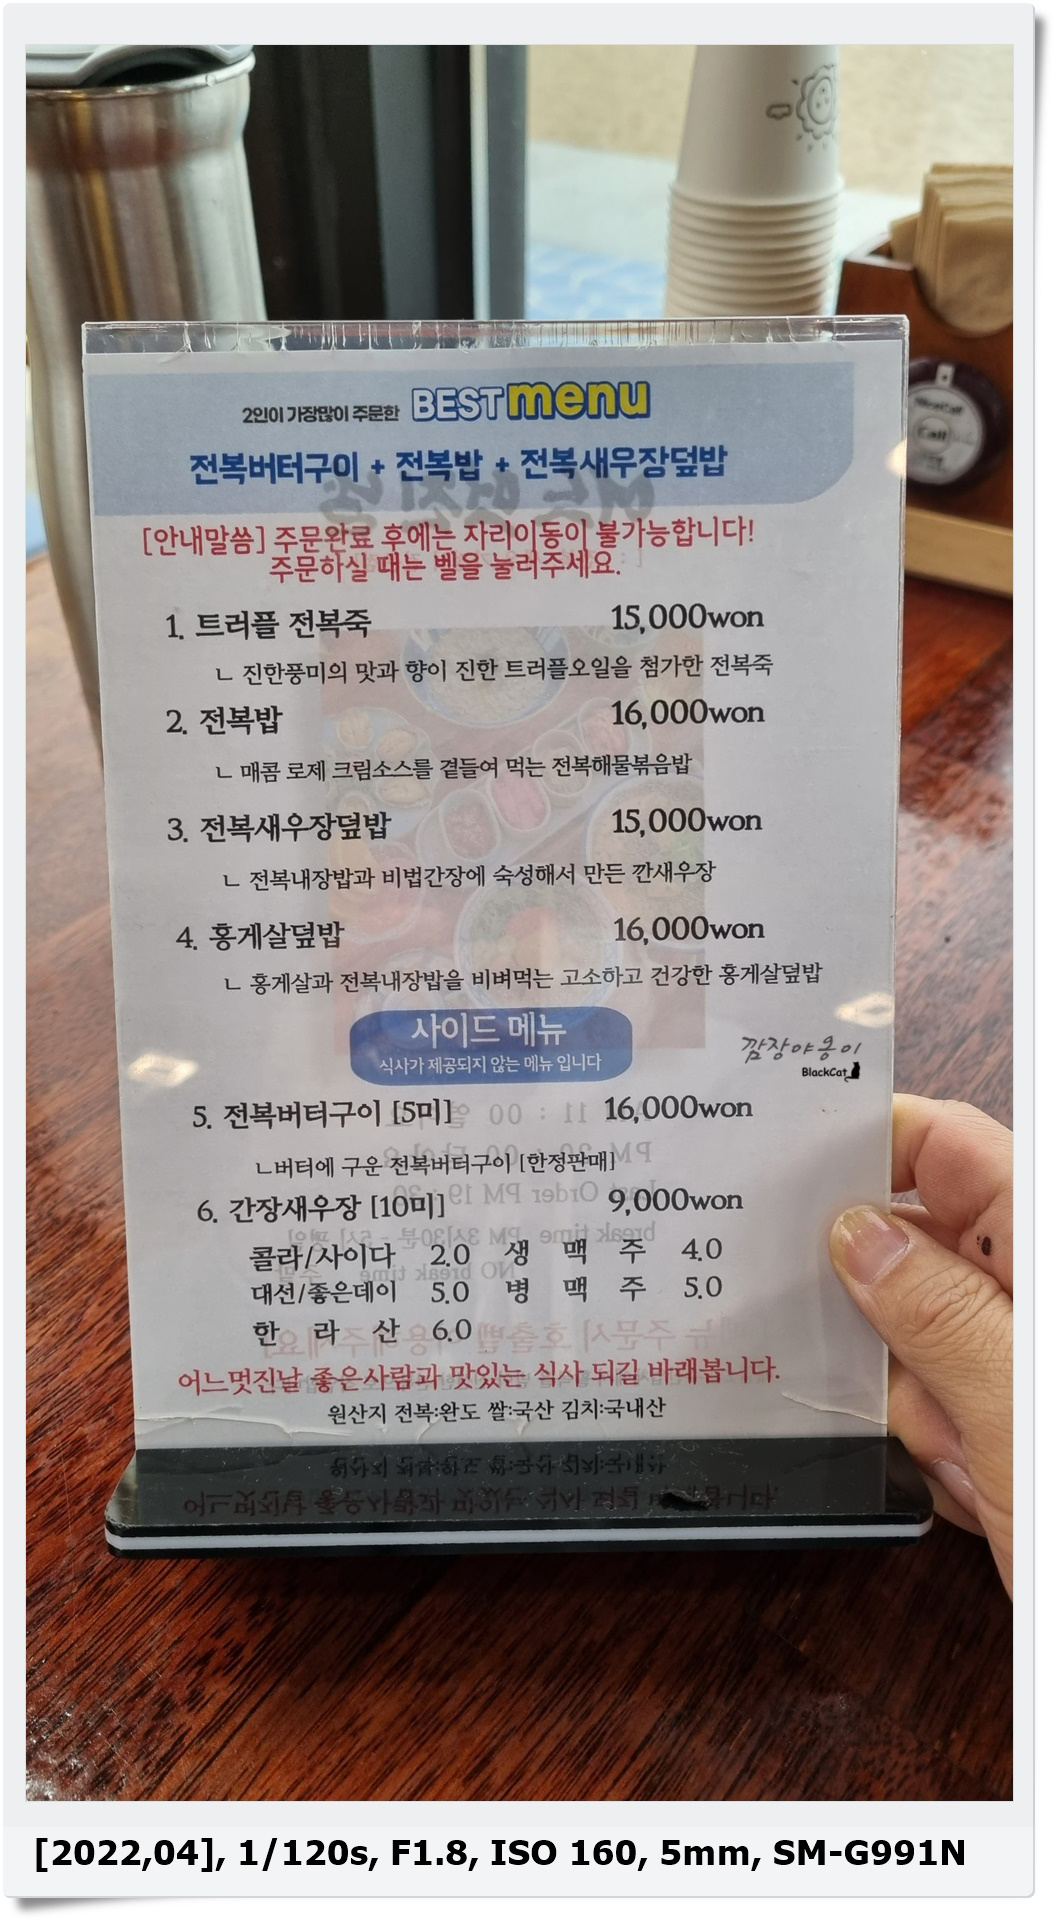 2인이 가장많이 주문한 BEST menu
전복버터구이 + 전복밥 + 전복새우장덮밥
[안내말씀] 주문완료 후에는 자리이동이 불가능합니다!
주문하실 때는 벨을 눌러주세요.
1. 트러플 전복죽 15,000won
ㄴ 진한풍미의 맛과 향이 진한 트러플오일을 첨가한 전복죽
2. 전복밥 16,000won
ㄴ 매콤 로제 크림소스를 곁들여 먹는 전복해물볶음밥
3. 전복새우장덮밥 15,000won
ㄴ 전복내장밥과 비법간장에 숙성해서 만든 깐새우장
4. 홍게살덮밥 16,000won
ㄴ 홍게살과 전복내장밥을 비벼먹는 고소하고 건강한 홍게살덮밥
사이드 메뉴
식사가 제공되지 않는 메뉴 입니다
깜장야옹이
BlackCat
5. 전복버터구이 [5미] 16,000won
ㄴ버터에 구운 전복버터구이 [한정판매]
6. 간장새우장 [10미] 9,000won
콜라/사이다 2.0 생 맥 주 4.0
대선/좋은데이 5.0 병 맥 주 5.0
한 라 산 6.0
어느멋진날 좋은사람과 맛있는 식사 되길 바래봅니다.
원산지 전복:완도 쌀:국산 김치:국내산
Call
[2022,04], 1/120s, F1.8, ISO 160, 5mm, SM-G991N